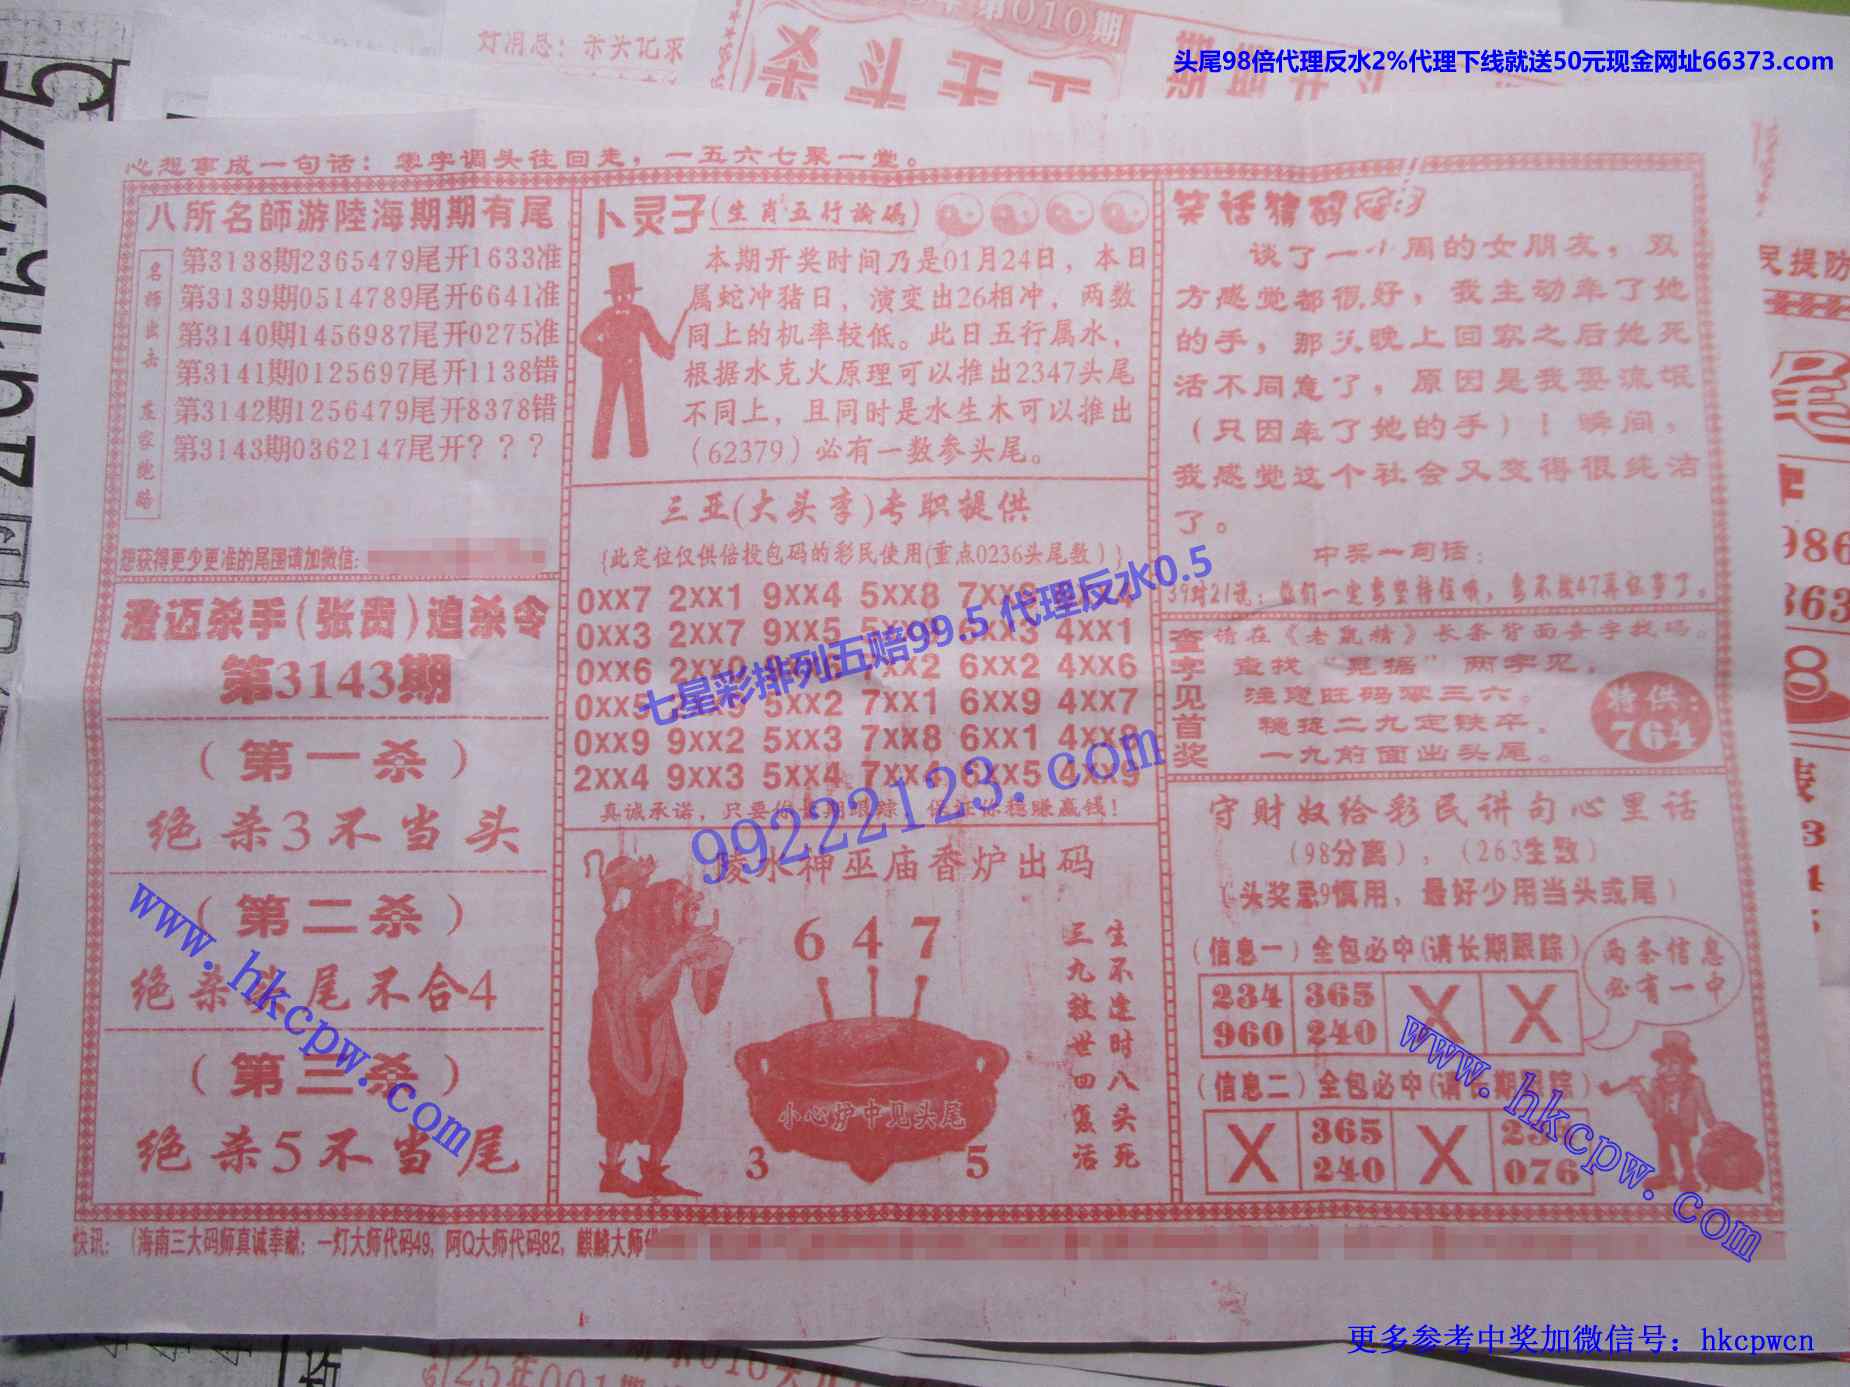 第010期
头尾98倍代理反水2%代理下线就送50元现金网址66373.com
心想事成一句话：零字调头往回走，一五六七聚一堂。
八所名師游陸海期期有尾
第3138期2365479尾开1633准
第3139期0514789尾开6641准
第3140期1456987尾开0275准
第3141期0125697尾开1138错
第3142期1256479尾开8378错
第3143期0362147尾开？？？
名师出去
庄家跑路
想获得更少更准的尾围请加微信:
澄迈杀手(张贵)追杀令
第3143期
（第一杀）
绝杀3不当头
（第二杀）
绝杀头尾不合4
（第三杀）
绝杀5不当尾
卜灵子(生肖五行论码)
本期开奖时间乃是01月24日，本日
属蛇冲猪日，演变出26相冲，两数
同上的机率较低。此日五行属水，
根据水克火原理可以推出2347头尾
不同上，且同时是水生木可以推出
（62379）必有一数参头尾。
三亚(大头李)专职提供
{此定位仅供倍投包码的彩民使用(重点0236头尾数)}
0XX7 2XX1 9XX4 5XX8
0XX3 2XX7 9XX5 4XX1
0XX6 6XX2 4XX6
5XX2 7XX1 6XX9 4XX7
0XX9 9XX2 5XX3 7XX8 6XX1
2XX4 9XX3 5XX4 4XX9
七星彩排列五赔99.5 代理反水0.5
99222123.com
陵水神巫庙香炉出码
6 4 7
小心炉中见头尾
3 5
生不逢时八头死
三九救世四复活
笑话猜码
谈了一个周的女朋友，双
方感觉都很好，我主动牵了她
的手，那天晚上回家之后她死
活不同意了，原因是我耍流氓
（只因牵了她的手）！瞬间，
我感觉这个社会又变得很纯洁
了。
中奖一句话：
查字见首奖
请在《老鼠精》长条背面杀字找码。
注意旺码零三六。
稳捉二九定铁卒，
一九前面出头尾。
特供：
764
守财奴给彩民讲句心里话
（98分离），（263生数）
（头奖忌9慎用，最好少用当头或尾）
（信息一）全包必中(请长期跟踪)
234 365 X X
960 240
两条信息
必有一中
（信息二）全包必中(请长期跟踪)
X 365 X
240 076
www.hkcpw.com
www.hkcpw.com
快讯：（海南三大码师真诚奉献：一灯大师代码49，阿Q大师代码82，麒麟大师
更多参考中奖加微信号：hkcpwcn